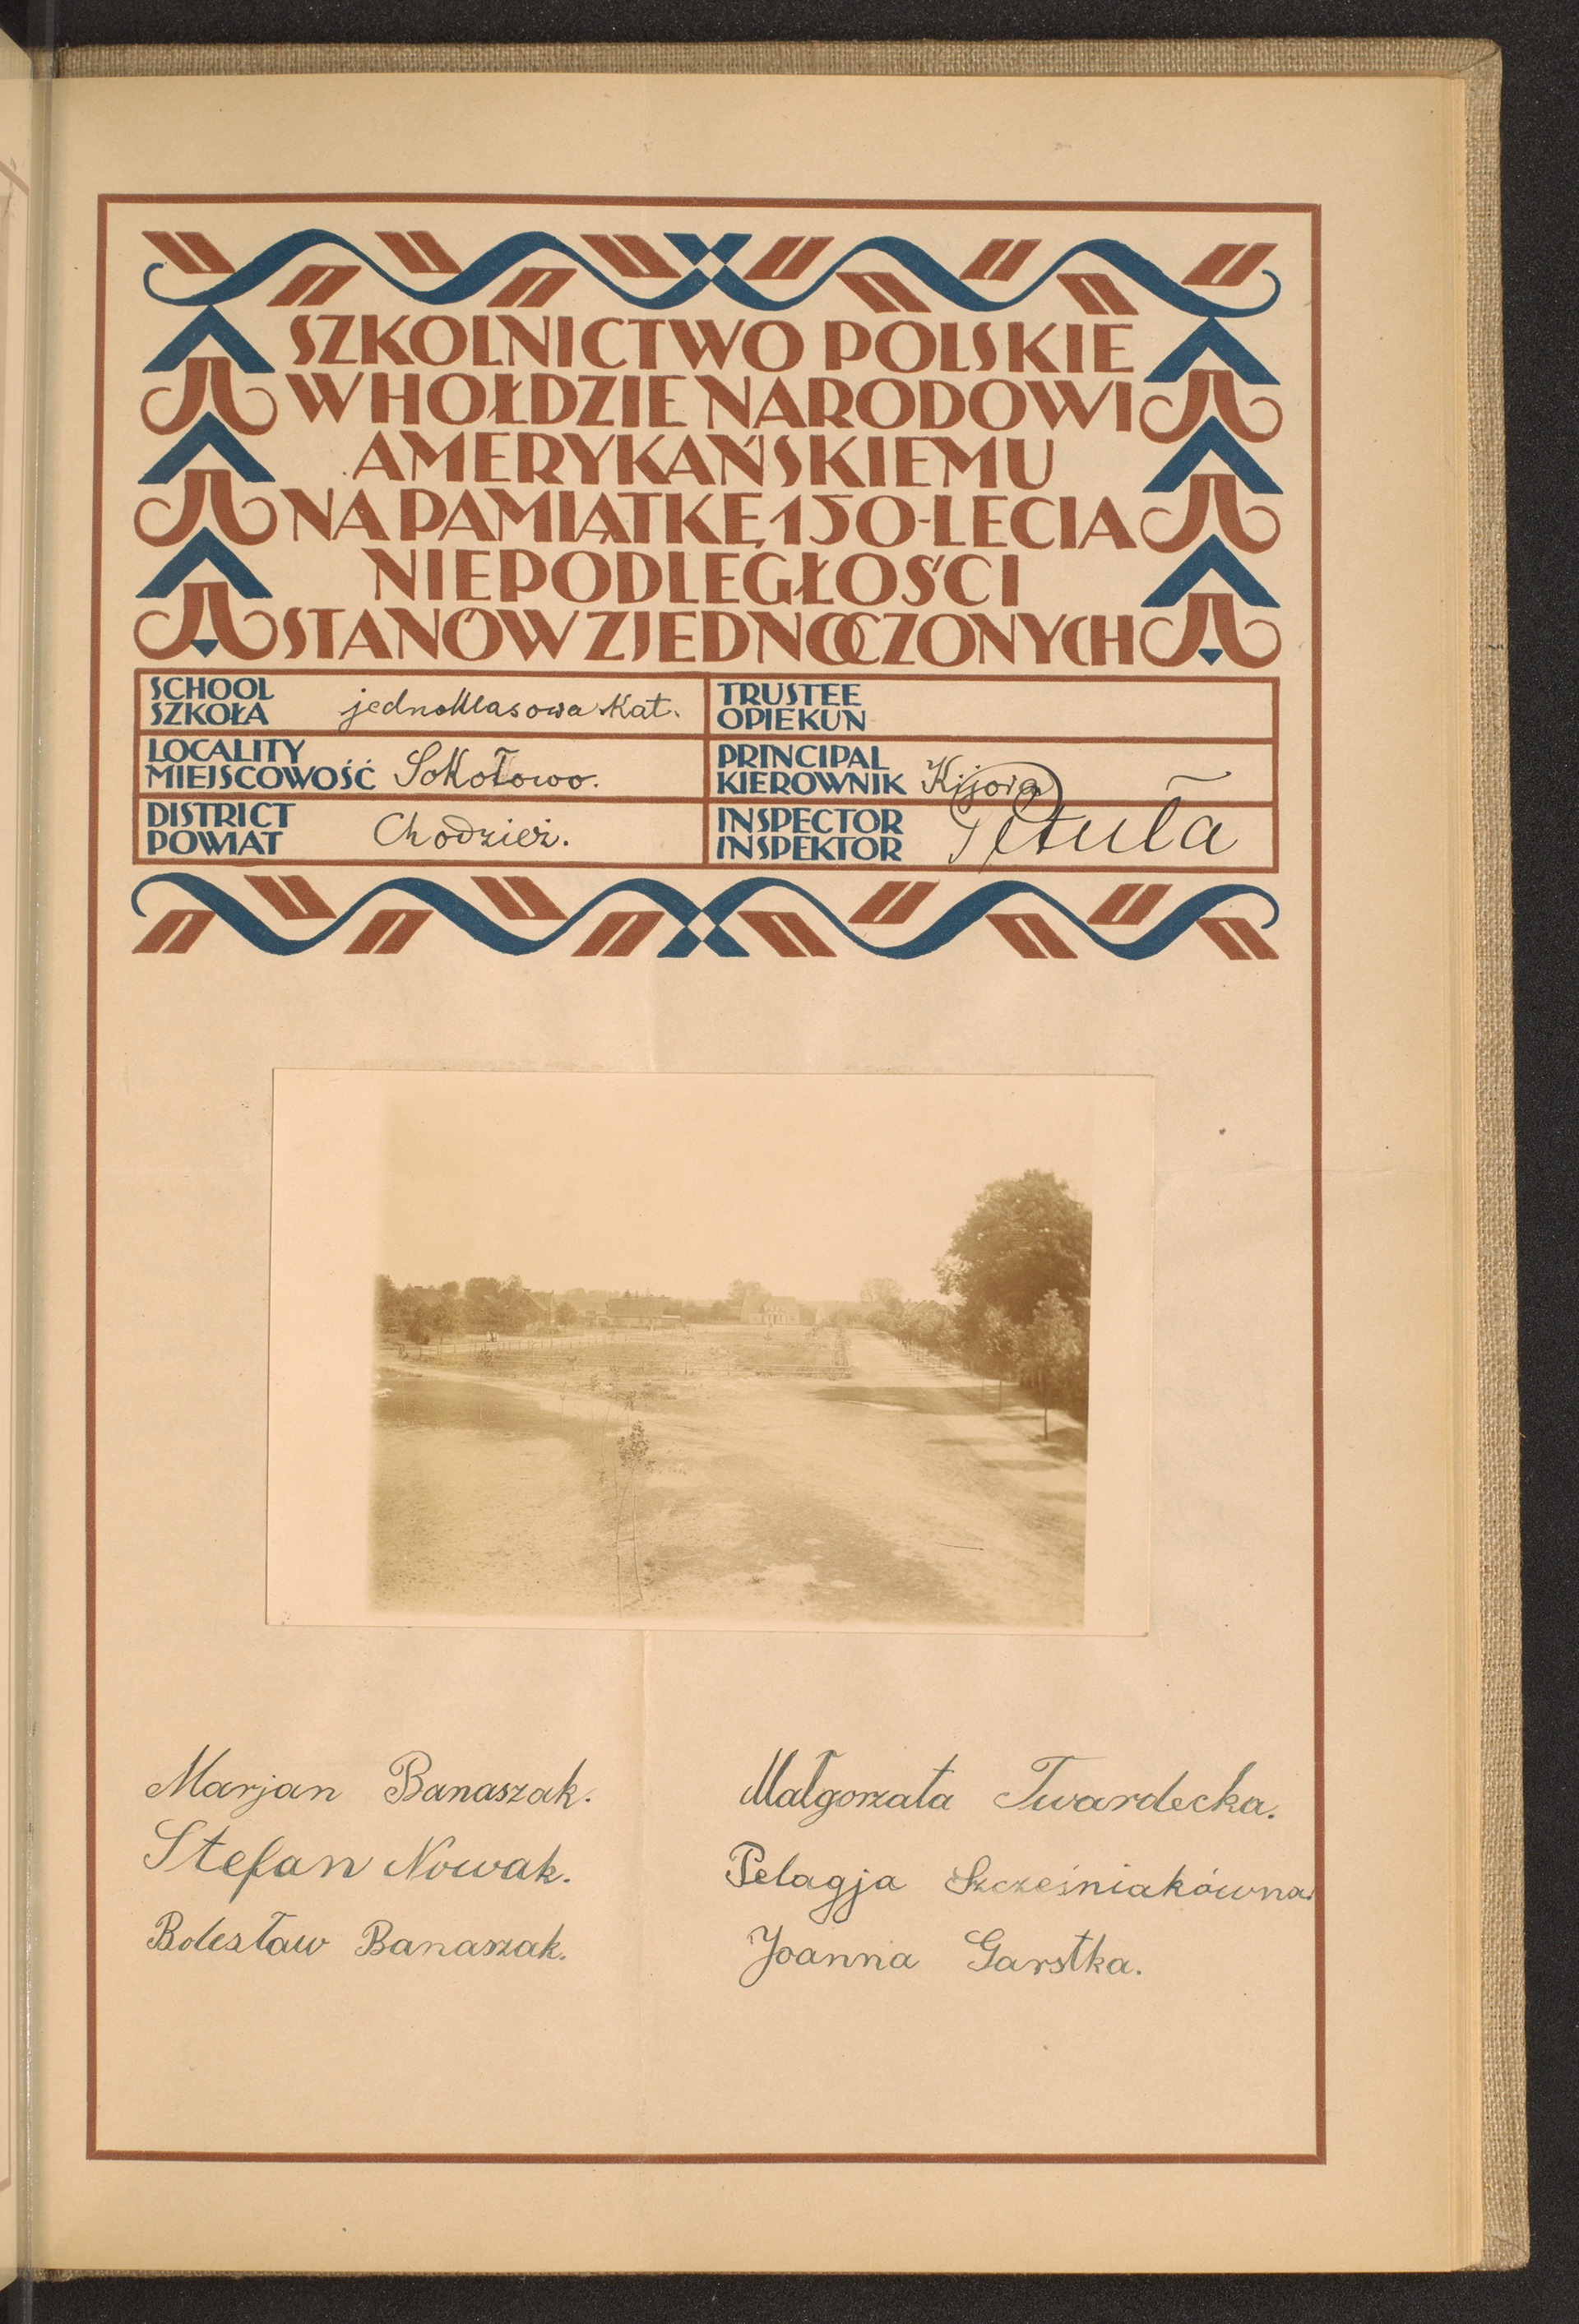 SZKOLNICTWO POLSKIE
W HOŁDZIE NARODOWI
AMERYKAŃSKIEMU
NA PAMIĄTKĘ 150-LECIA
NIEPODLEGŁOŚCI
STANÓW ZJEDNOCZONYCH
SCHOOL
SZKOŁA jednoklasowa kat.
TRUSTEE
OPIEKUN
LOCALITY
MIEJSCOWOŚĆ Sokołowo.
PRINCIPAL
KIEROWNIK
DISTRICT
POWIAT Chodzież.
INSPECTOR
INSPEKTOR Petula
Marjan Banaszak.
Stefan Nowak.
Bolesław Banaszak.
Małgorzata Twardecka.
Pelagja Szcześniakówna.
Joanna Garstka.